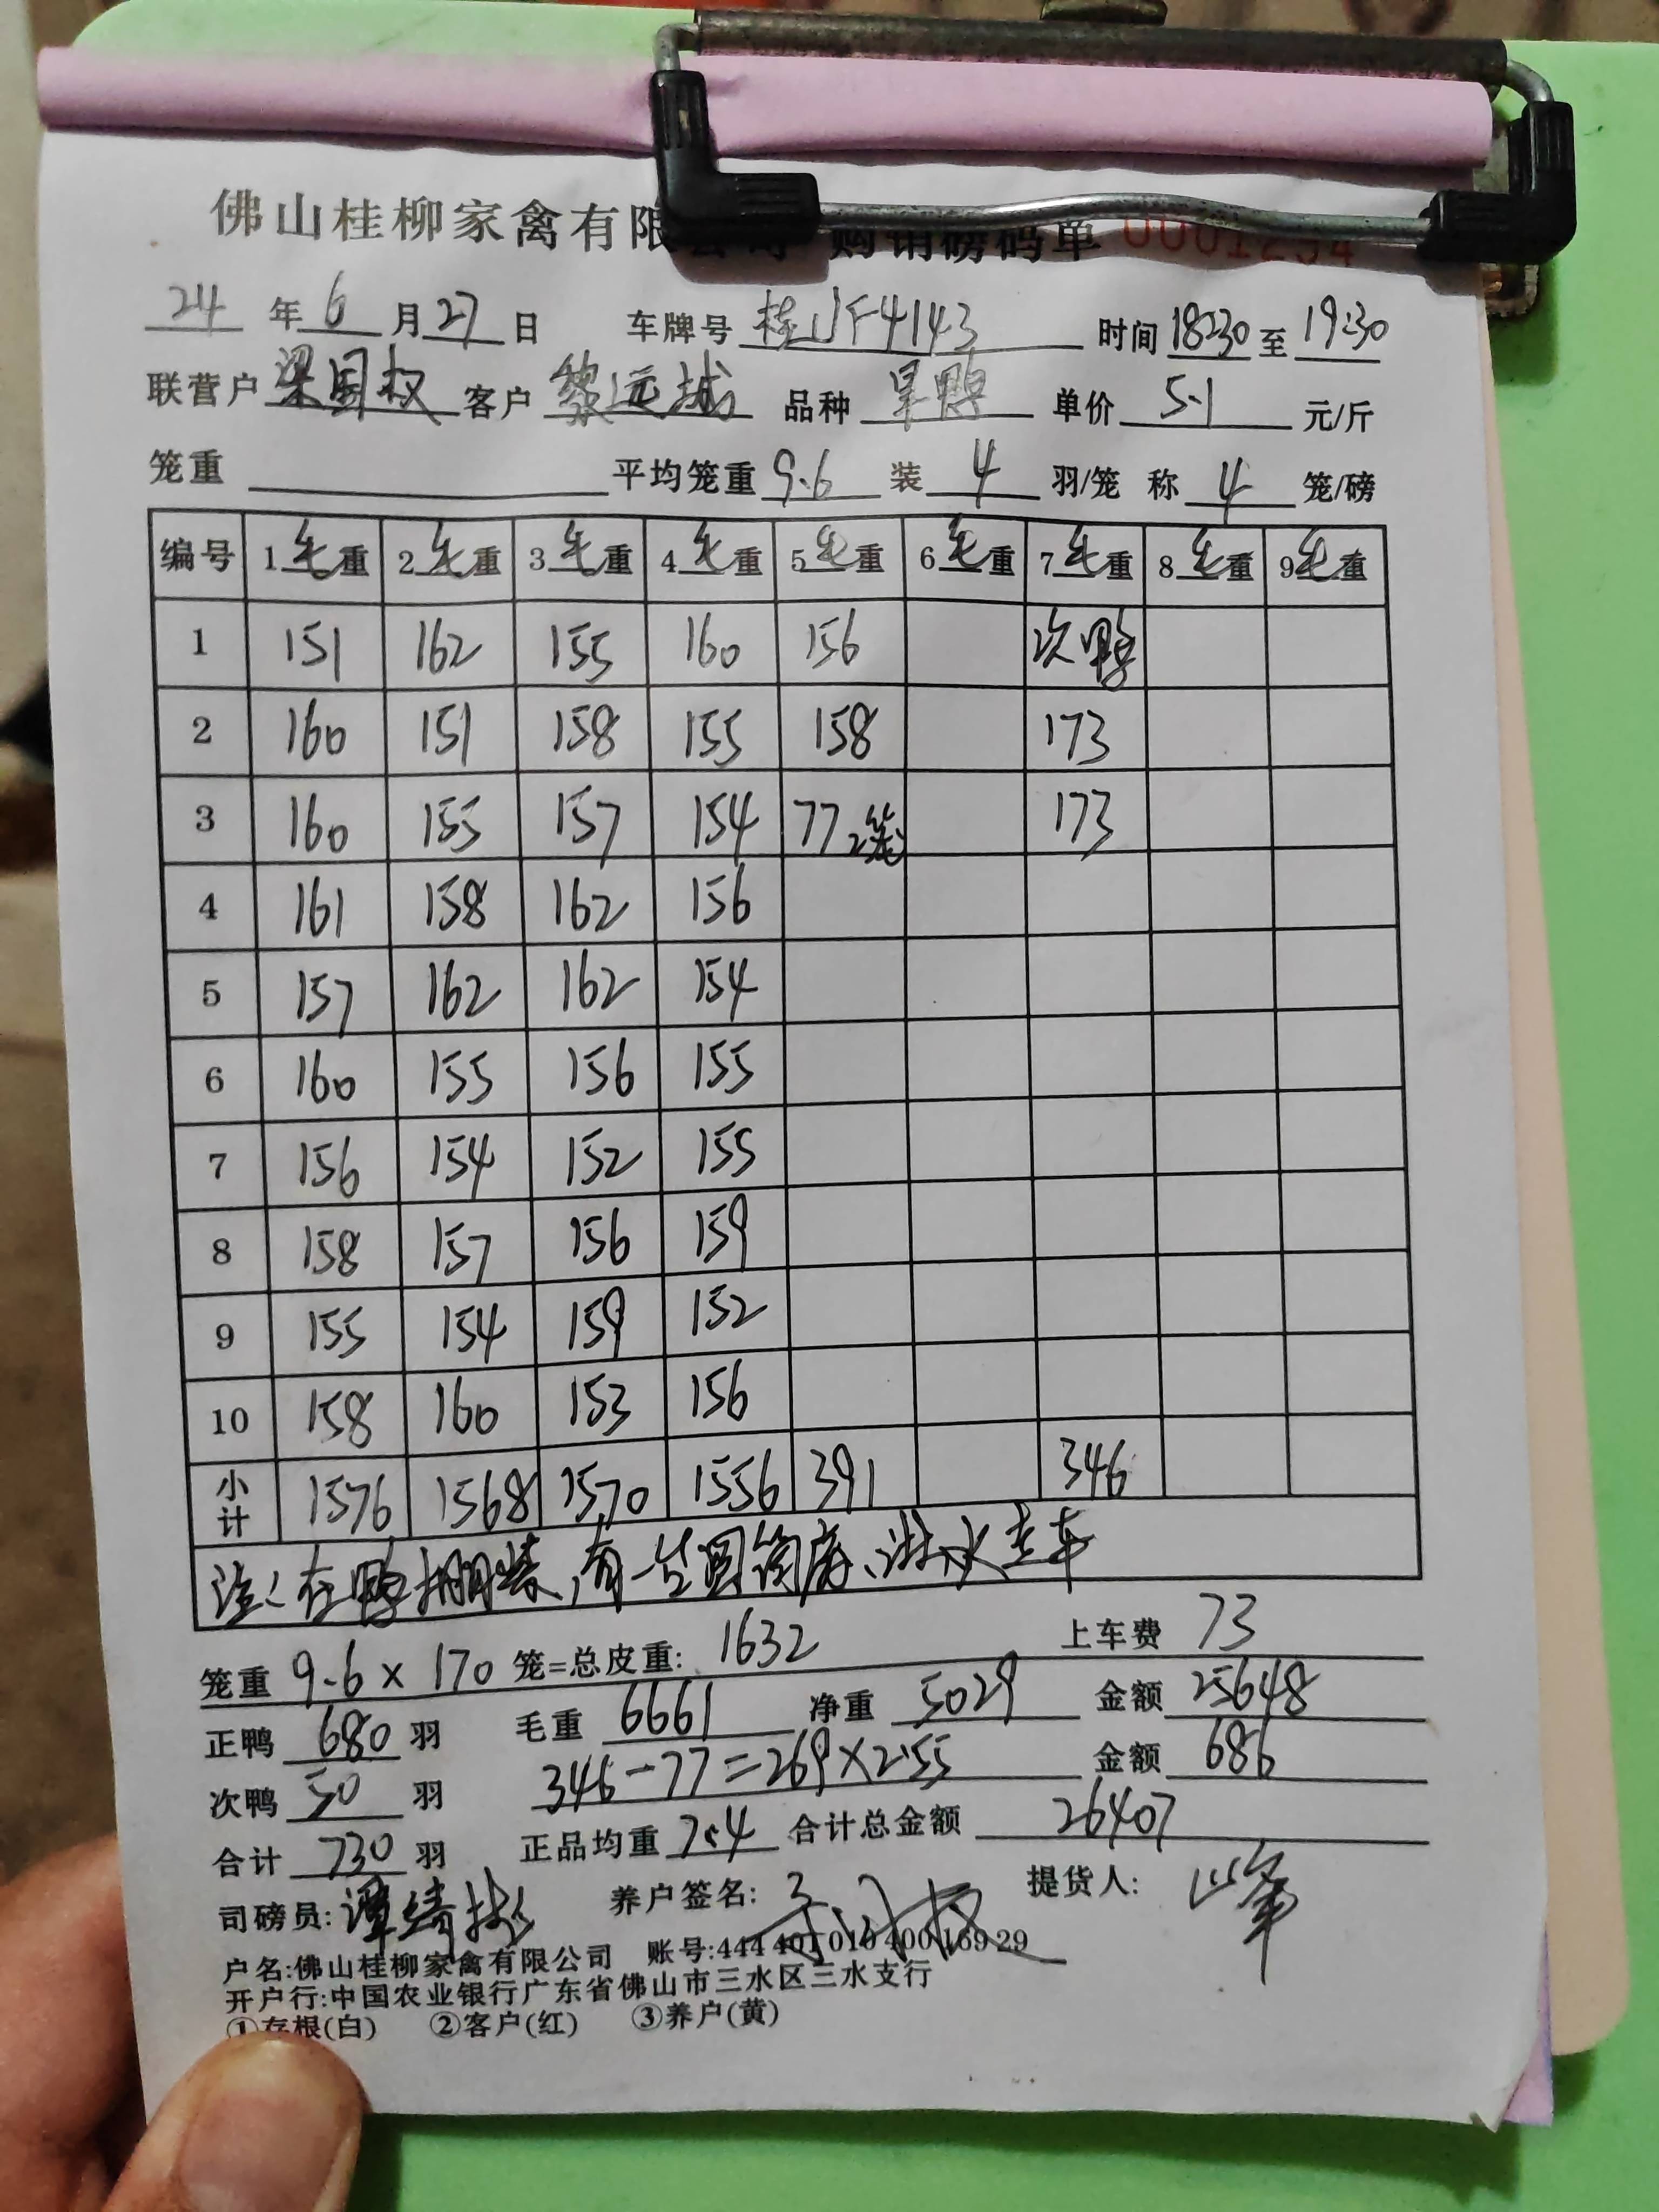 佛山桂柳家禽有限公司 购销磅码单 0001234
24 年 6 月 27 日 车牌号 桂JF4143 时间 18:30 至 19:30
联营户 梁国权 客户 黎远城 品种 旱鸭 单价 5.1 元/斤
笼重 平均笼重 9.6 装 4 羽/笼 称 4 笼/磅
编号 1毛重 2毛重 3毛重 4毛重 5毛重 6毛重 7毛重 8毛重 9毛重
1 151 162 155 160 156 次鸭
2 160 151 158 155 158 173
3 160 155 157 154 77 2笼 173
4 161 158 162 156
5 157 162 162 154
6 160 155 156 155
7 156 154 152 155
8 158 157 156 159
9 155 154 159 152
10 158 160 153 156
小计 1576 1568 1570 1556 391 346
注:在鸭棚装,有一台圆筒磅、淋水走车
笼重 9.6 × 170 笼=总皮重: 1632 上车费 73
正鸭 680 羽 毛重 6661 净重 5029 金额 25648
次鸭 50 羽 346-77=269×2.55 金额 686
合计 730 羽 正品均重 7.4 合计总金额 26407
司磅员: 谭 养户签名: 提货人: 峰
户名:佛山桂柳家禽有限公司 账号:444 401 010 400 169 29
开户行:中国农业银行广东省佛山市三水区三水支行
①存根(白) ②客户(红) ③养户(黄)